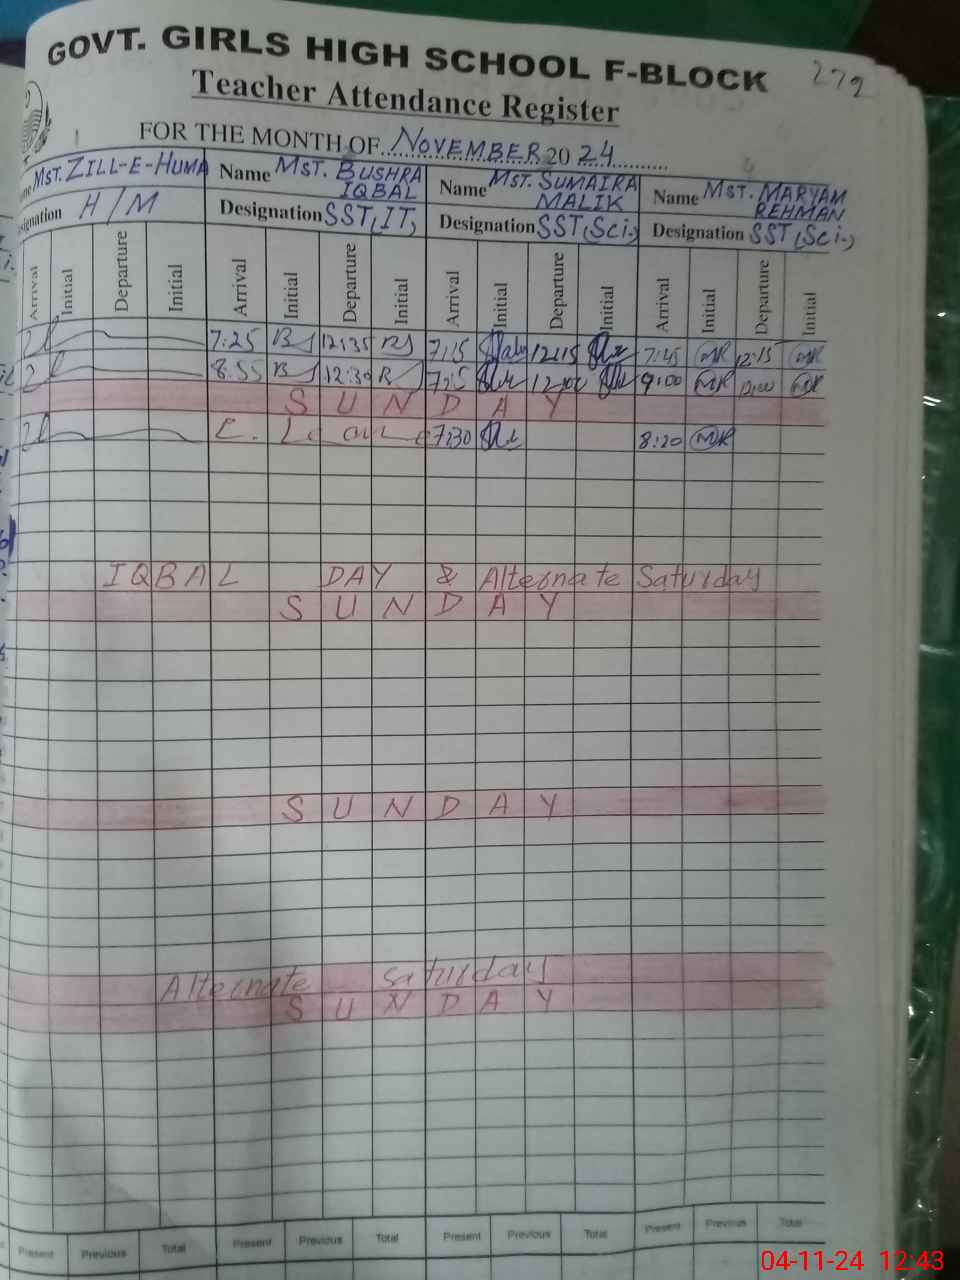 GOVT. GIRLS HIGH SCHOOL F-BLOCK
279
Teacher Attendance Register
FOR THE MONTH OF NOVEMBER 2024
MST. ZILL-E-HUMA Name MST. BUSHRA IQBAL Name MST. SUMAIRA MALIK Name MST. MARYAM REHMAN
H/M Designation SST(IT) Designation SST(Sci.) Designation SST(Sci.)
Arrival Initial Departure Initial Arrival Initial Departure Initial Arrival Initial Departure Initial Arrival Initial Departure Initial
7:25 12:35 7:15 12:15 7:45 MR 12:15 MR
8:55 12:30 7:25 9:00 MR 12:00 MR
SUNDAY
C. Leave 7:30 8:20 MR
IQBAL DAY & Alternate Saturday
SUNDAY
SUNDAY
Alternate Saturday
SUNDAY
Present Previous Total Present Previous Total Present Previous Total Present Previous Total
04-11-24 12:43